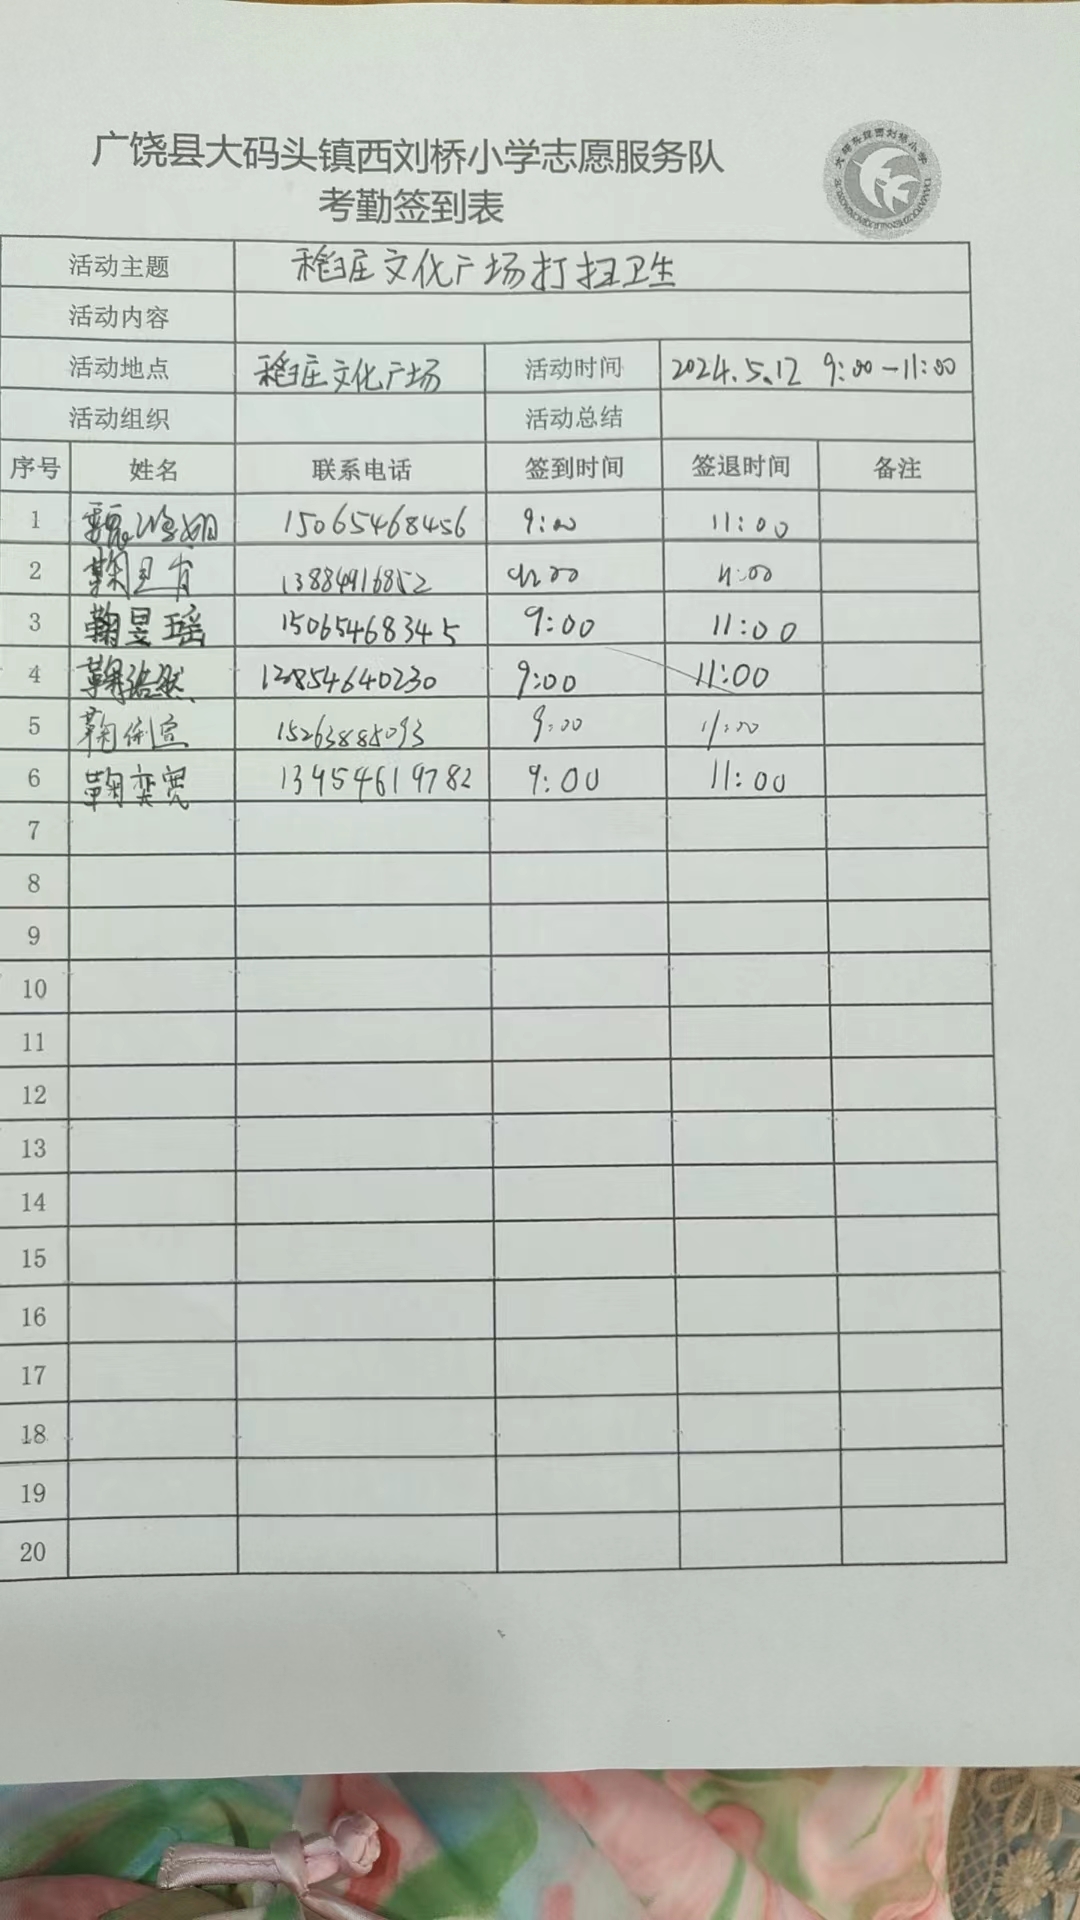 广饶县大码头镇西刘桥小学志愿服务队
考勤签到表
活动主题 稻庄文化广场打扫卫生
活动内容
活动地点 稻庄文化广场 活动时间 2024.5.12 9:00-11:00
活动组织 活动总结
序号 姓名 联系电话 签到时间 签退时间 备注
1 15065468456 9:00 11:00
2 13884916852 9:00 11:00
3 鞠昱瑶 15065468345 9:00 11:00
4 鞠浩然 13854640230 9:00 11:00
5 15263885093 9:00 11:00
6 鞠奕宽 13954619782 9:00 11:00
7
8
9
10
11
12
13
14
15
16
17
18
19
20